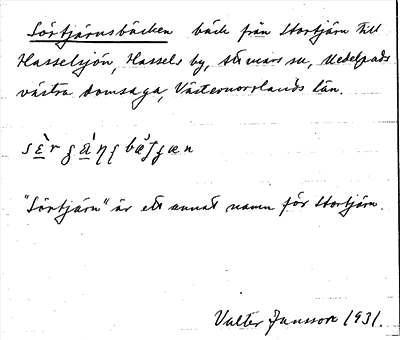 Sörtjärnsbäcken bäck från Stortjärn till
Hasselsjön, Hassels by, Stuvars sn, Medelpads
västra domsaga, Västernorrlands län.
"Sörtjärn" är ett annat namn för Stortjärn.
Valter Jansson 1931.